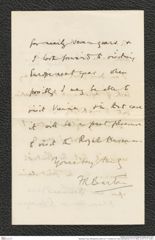 for nearly seven years, &
I look forward to visiting
Europe next year, when
possibly I may be able to
visit Vienna, in that case
it will be a great pleasure
to visit the Royal Museum
Yours very truly